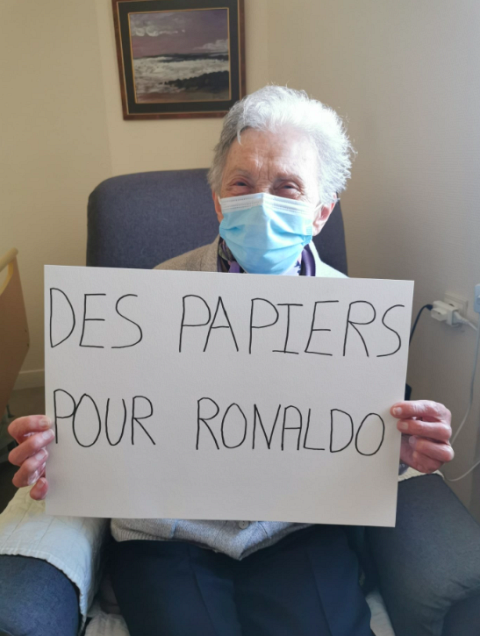 DES PAPIERS
POUR RONALDO